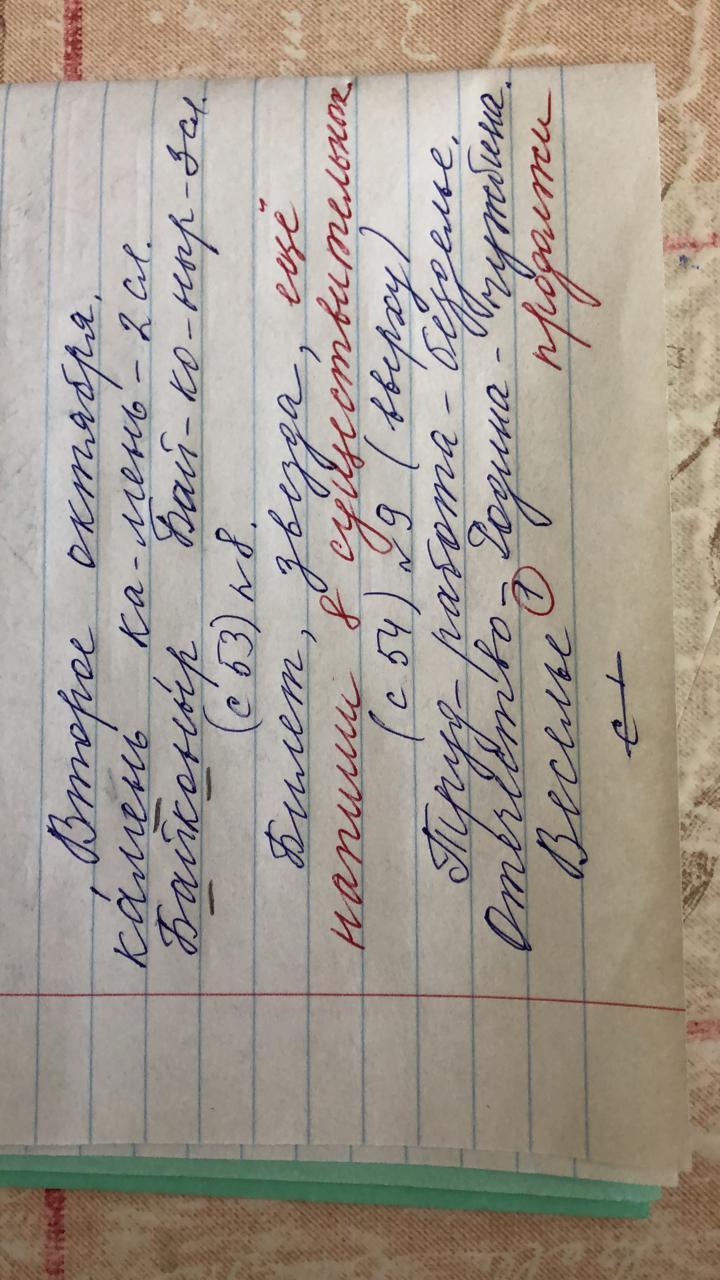 Второе октября.
камень ка-мень - 2 сл.
Байконыр Бай-ко-ныр - 3 сл.
(с 53) № 8.
Билет, звезда, ещё
напиши 8 существительных.
(с 54) № 9 (вверху)
Труд - работа - безделье.
Отечество - Родина - чужбина.
Веселье (1) продолжи